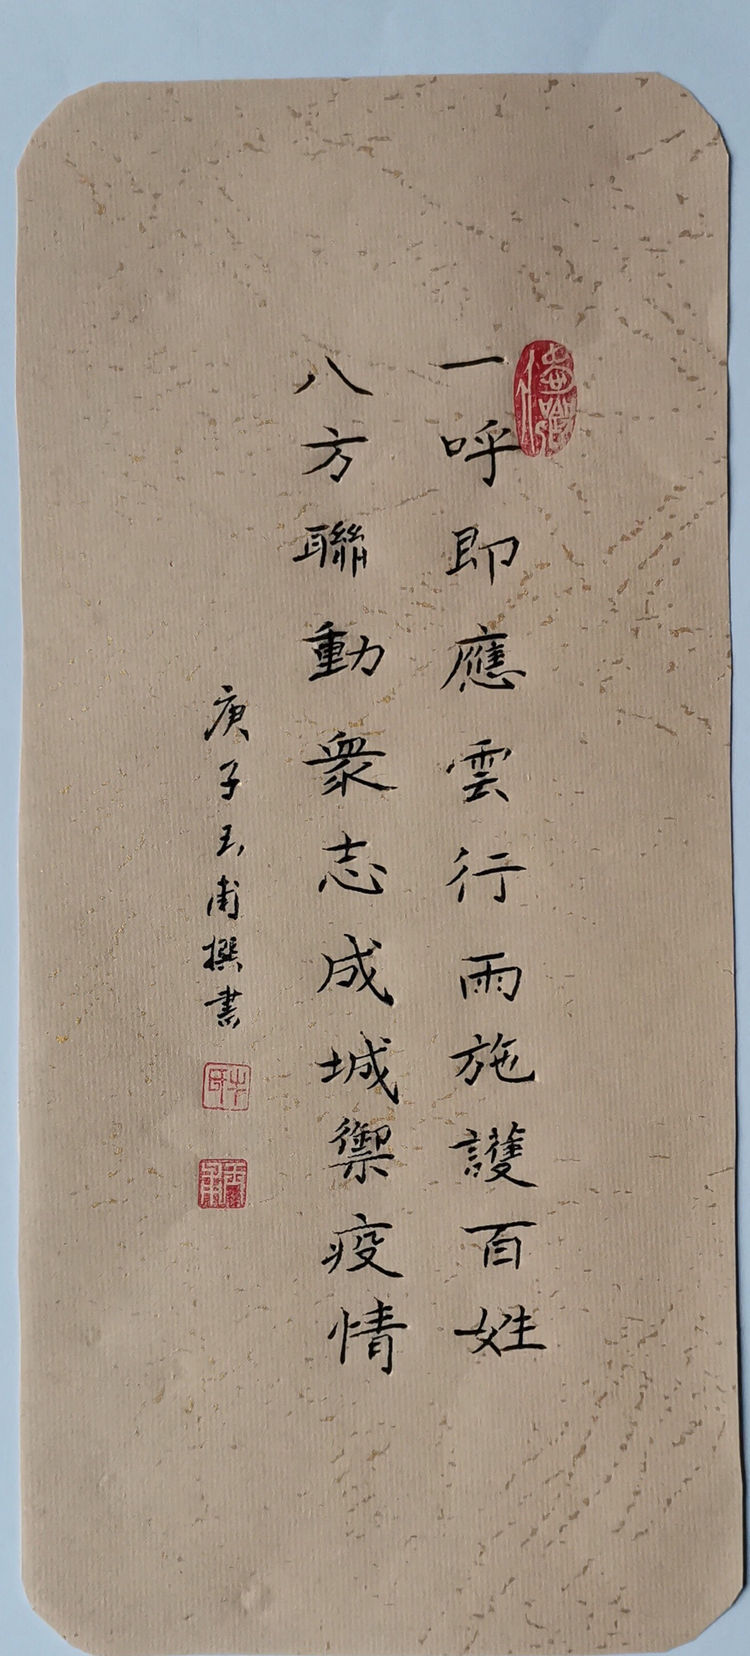 一呼即應雲行雨施護百姓
八方聯動衆志成城禦疫情
庚子玉甫撰書